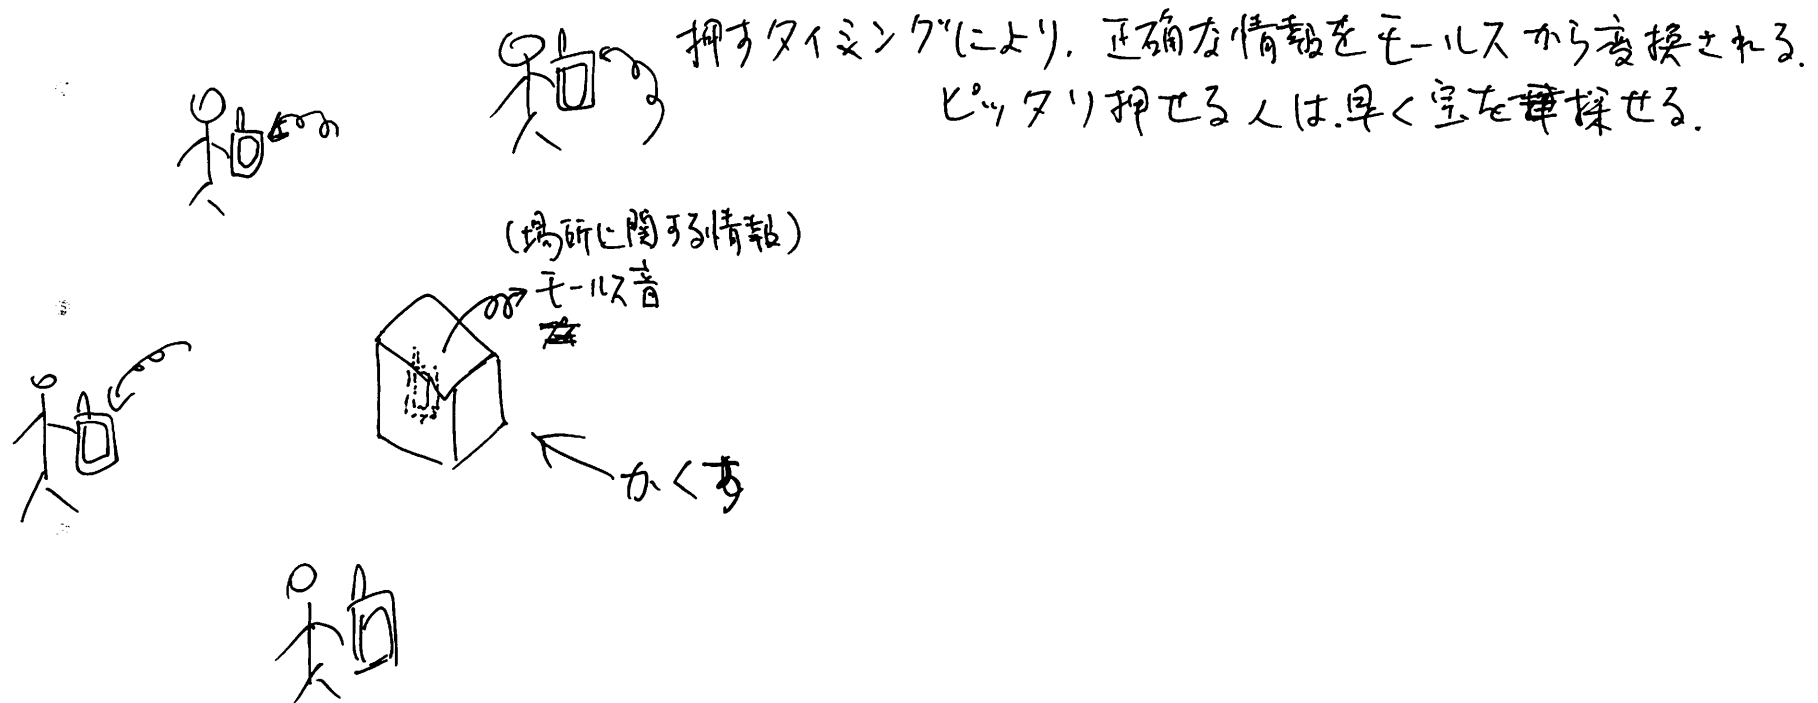 押すタイミングにより、正確な情報をモールスから変換される.
ピッタリ押せる人は.早く宝を探せる.
(場所に関する情報)
モールス音
かくす